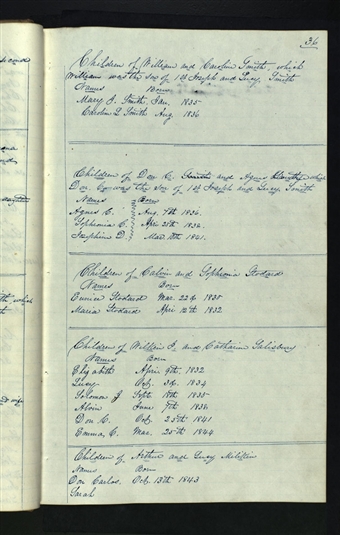 36
Children of William and Caroline Smith, which
William was the Son of 1st Joseph and Lucy Smith
Names Born
Mary J. Smith, Jan. 1835
Caroline L. Smith Aug 1836
Children of Don C. Smith and Agnes which
Don C. was the Son of 1st Joseph and Lucy Smith
Names Born
Agnes C. Aug. 7th 1836.
Sophronia C. Apr. 25th 1838.
Josephine D. Mar. 10th 1841.
Children of Calvin and Sophronia Stodard
Names Born
Eunice Stodard Mar. 22d 1830
Maria Stodard Apr. 12th 1832
Children of Wilkins J. and Catharine Salisbury
Names Born
Elizabeth April 9th 1832
Lucy Oct. 3d 1834
Solomon J. Sept. 18th 1835
Alvin June 7th 1838
Don C. Oct. 25th 1841
Emma, C. Mar. 25th 1844
Children of Arthur and Lucy Millikin
Names Born
Don Carlos. Oct. 13th 1843
Sarah